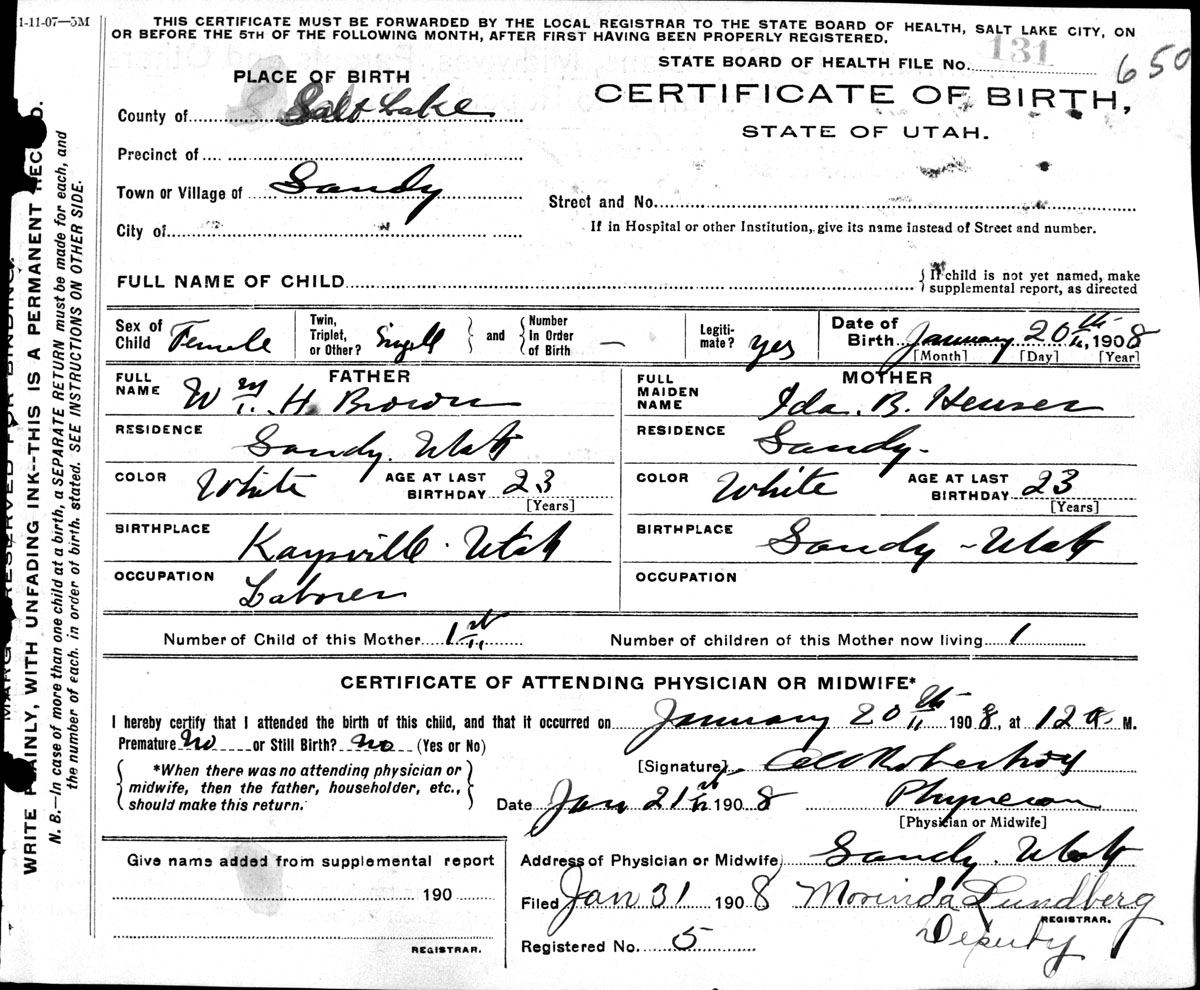 1-11-07—5M
THIS CERTIFICATE MUST BE FORWARDED BY THE LOCAL REGISTRAR TO THE STATE BOARD OF HEALTH, SALT LAKE CITY, ON
OR BEFORE THE 5TH OF THE FOLLOWING MONTH, AFTER FIRST HAVING BEEN PROPERLY REGISTERED.
STATE BOARD OF HEALTH FILE No. 131 650
PLACE OF BIRTH
CERTIFICATE OF BIRTH,
STATE OF UTAH.
County of Salt Lake
Precinct of
Town or Village of Sandy
Street and No.
City of
If in Hospital or other Institution, give its name instead of Street and number.
FULL NAME OF CHILD
{ If child is not yet named, make
supplemental report, as directed
Sex of Child Female
Twin, Triplet, or Other? Singel
and
Number In Order of Birth —
Legitimate? yes
Date of Birth January 20th, 1908
[Month] [Day] [Year]
FATHER
FULL NAME Wm. H. Brown
RESIDENCE Sandy. Utah
COLOR White
AGE AT LAST BIRTHDAY 23
[Years]
BIRTHPLACE Kaysville. Utah
OCCUPATION Laborer
MOTHER
FULL MAIDEN NAME Ida. B. Heuser
RESIDENCE Sandy.
COLOR White
AGE AT LAST BIRTHDAY 23
[Years]
BIRTHPLACE Sandy - Utah
OCCUPATION
Number of Child of this Mother 1st
Number of children of this Mother now living 1
CERTIFICATE OF ATTENDING PHYSICIAN OR MIDWIFE*
I hereby certify that I attended the birth of this child, and that it occurred on January 20th 1908, at 12 a. M.
Premature No or Still Birth? No (Yes or No)
*When there was no attending physician or
midwife, then the father, householder, etc.,
should make this return.
[Signature]
Date Jan 21st 1908
Physician
[Physician or Midwife]
Address of Physician or Midwife Sandy. Utah
Filed Jan 31 1908 Morinda Lundberg
REGISTRAR.
Deputy
Registered No. 5
Give name added from supplemental report
190
REGISTRAR.
MARGIN RESERVED FOR BINDING.
WRITE PLAINLY, WITH UNFADING INK--THIS IS A PERMANENT RECORD.
N. B.—In case of more than one child at a birth, a SEPARATE RETURN must be made for each, and
the number of each, in order of birth, stated. SEE INSTRUCTIONS ON OTHER SIDE.